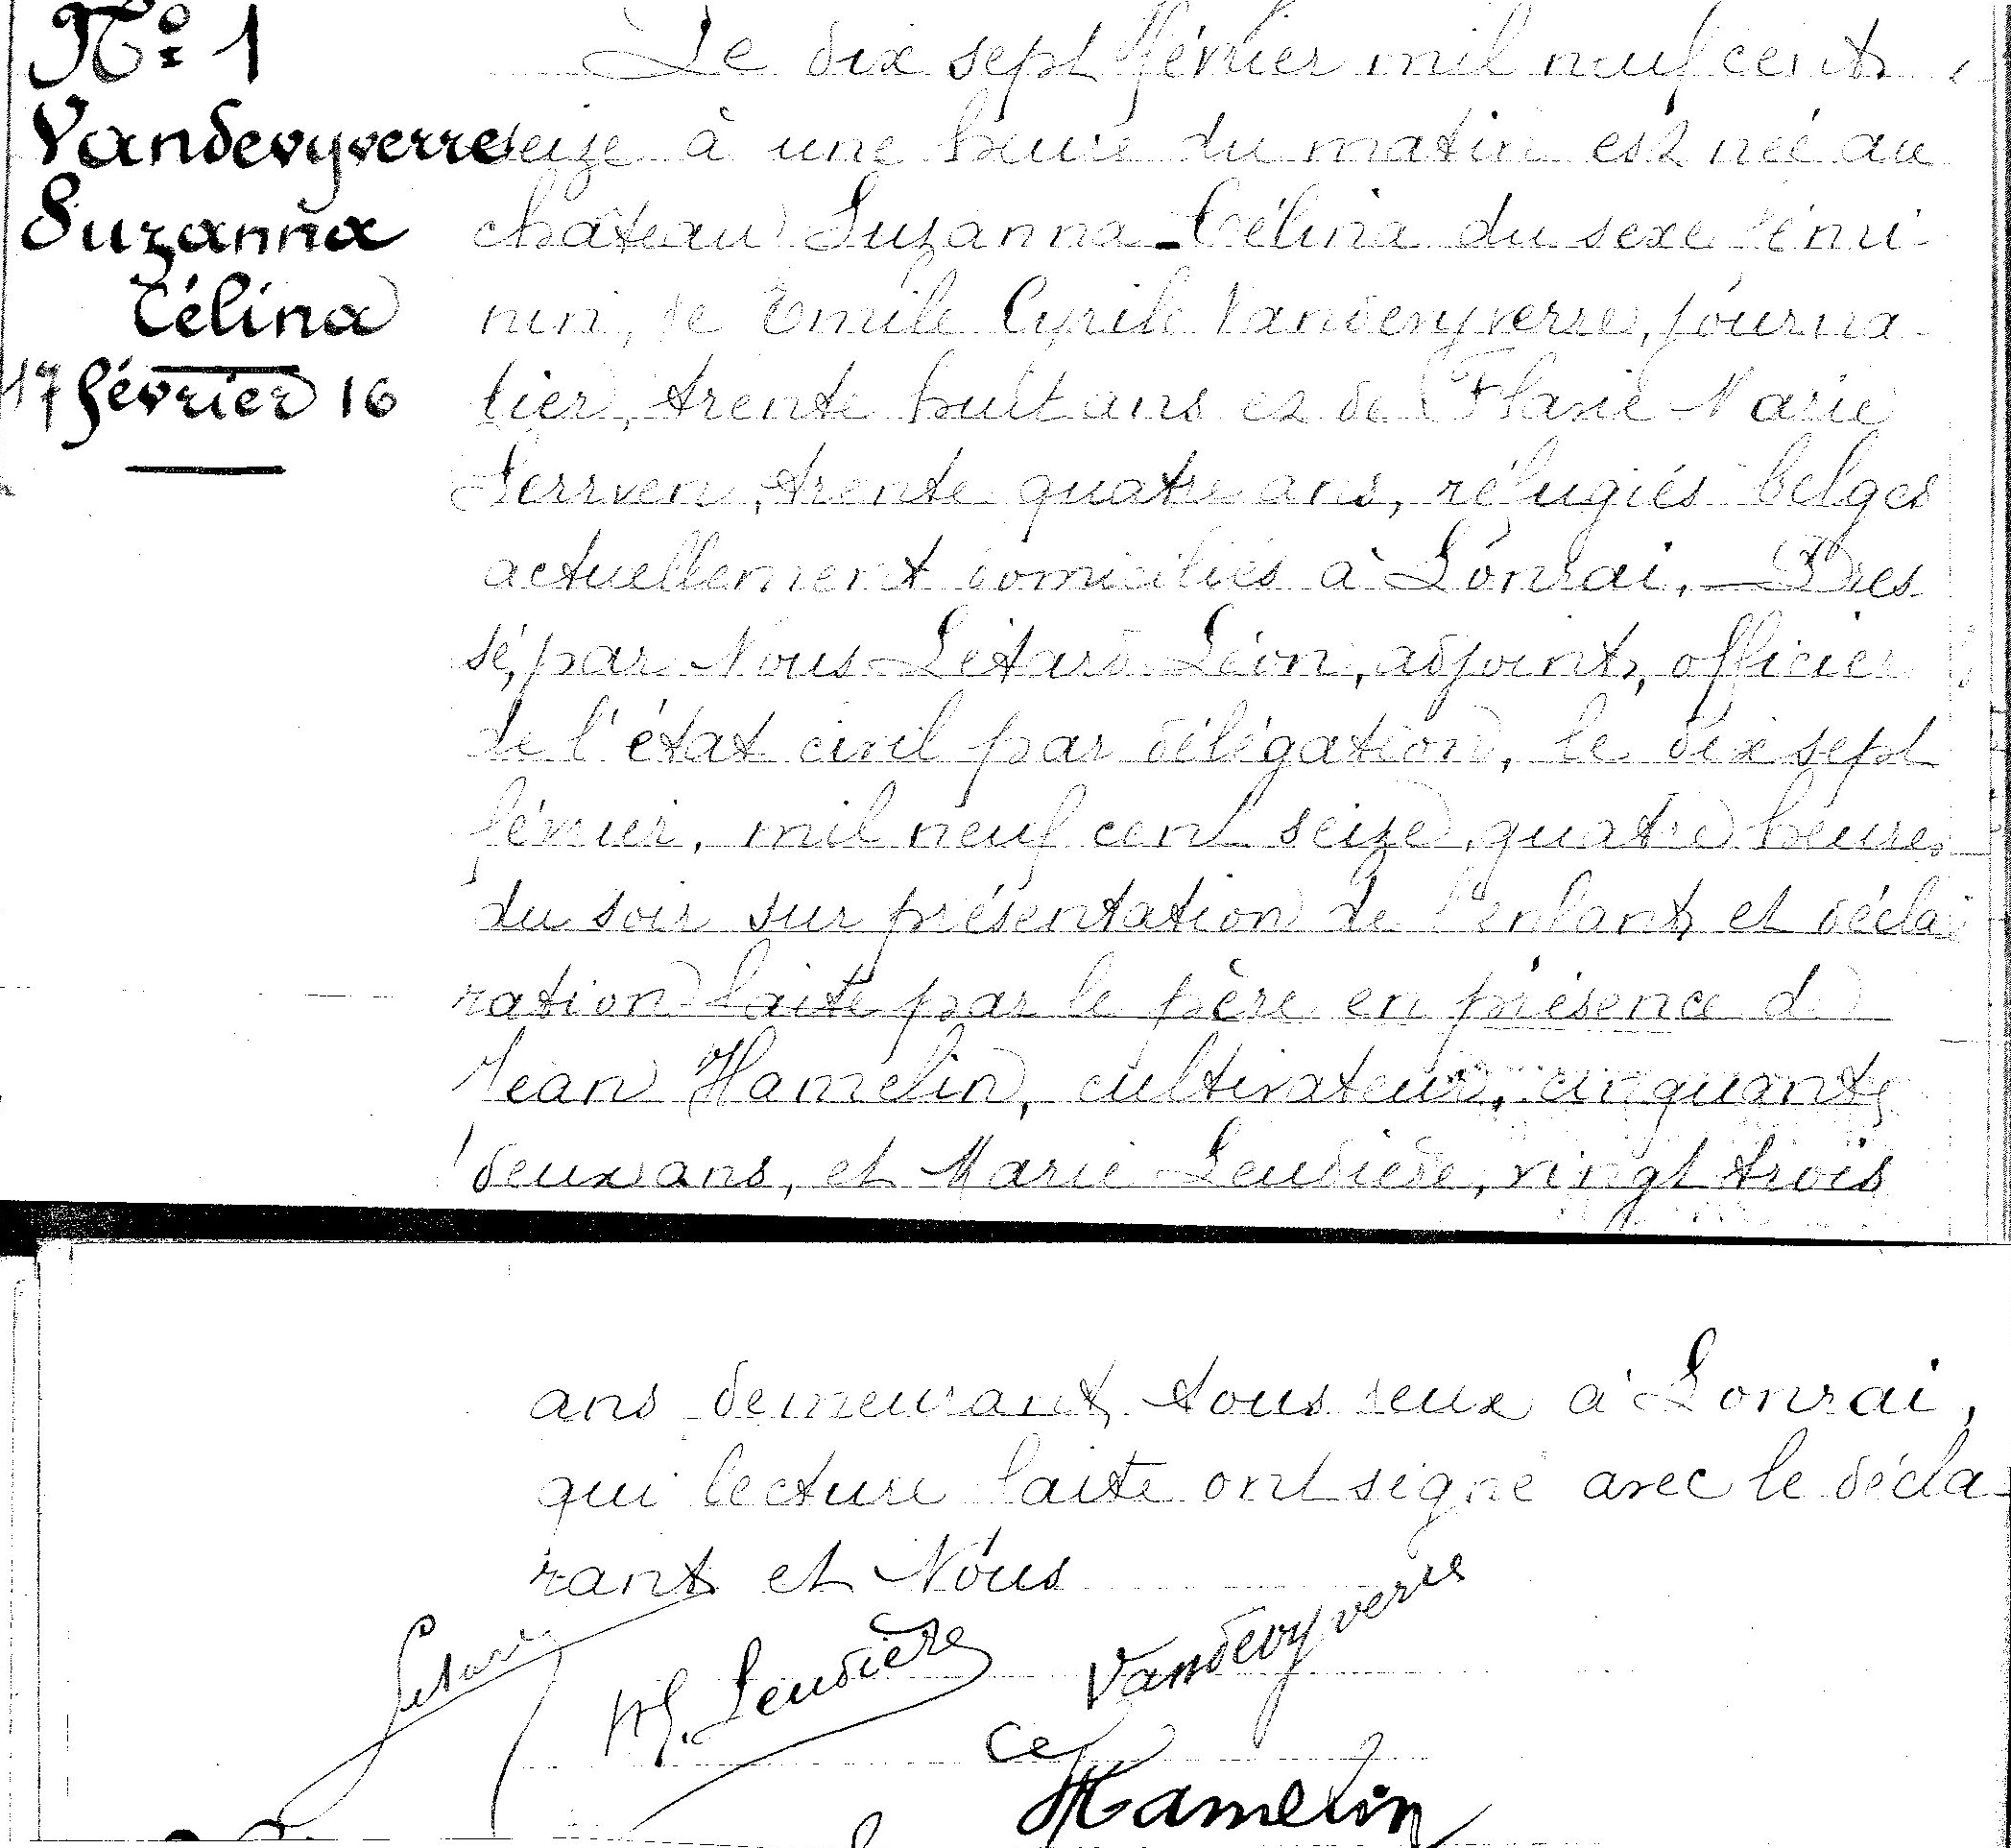 N° 1
Vandevyverre
Suzanna
Célina
17 février 16
Le dix sept février mil neuf cent
seize à une heure du matin est née au
château Suzanna Célina du sexe fémi-
nin, de Emile Cyrile Vandevyverre, journa-
lier, trente huit ans et de Flavie Marie
trente quatre ans, réfugiés belges
actuellement domiciliés à Lonrai. Dres
sé, par Nous Létard Léon, adjoint, officier
de l'état civil par délégation, le dix sept
février, mil neuf cent seize, quatre heures
du soir sur présentation de l'enfant et décla
ration faite par le père en présence de
Jean Hamelin, cultivateur, cinquante
deux ans, et Marie Leudière, vingt trois
ans demeurant tous deux à Lonrai,
qui lecture faite ont signé avec le décla-
rant et Nous
Létard
M. Leudière
Vandevyverre
Ce
Hamelin